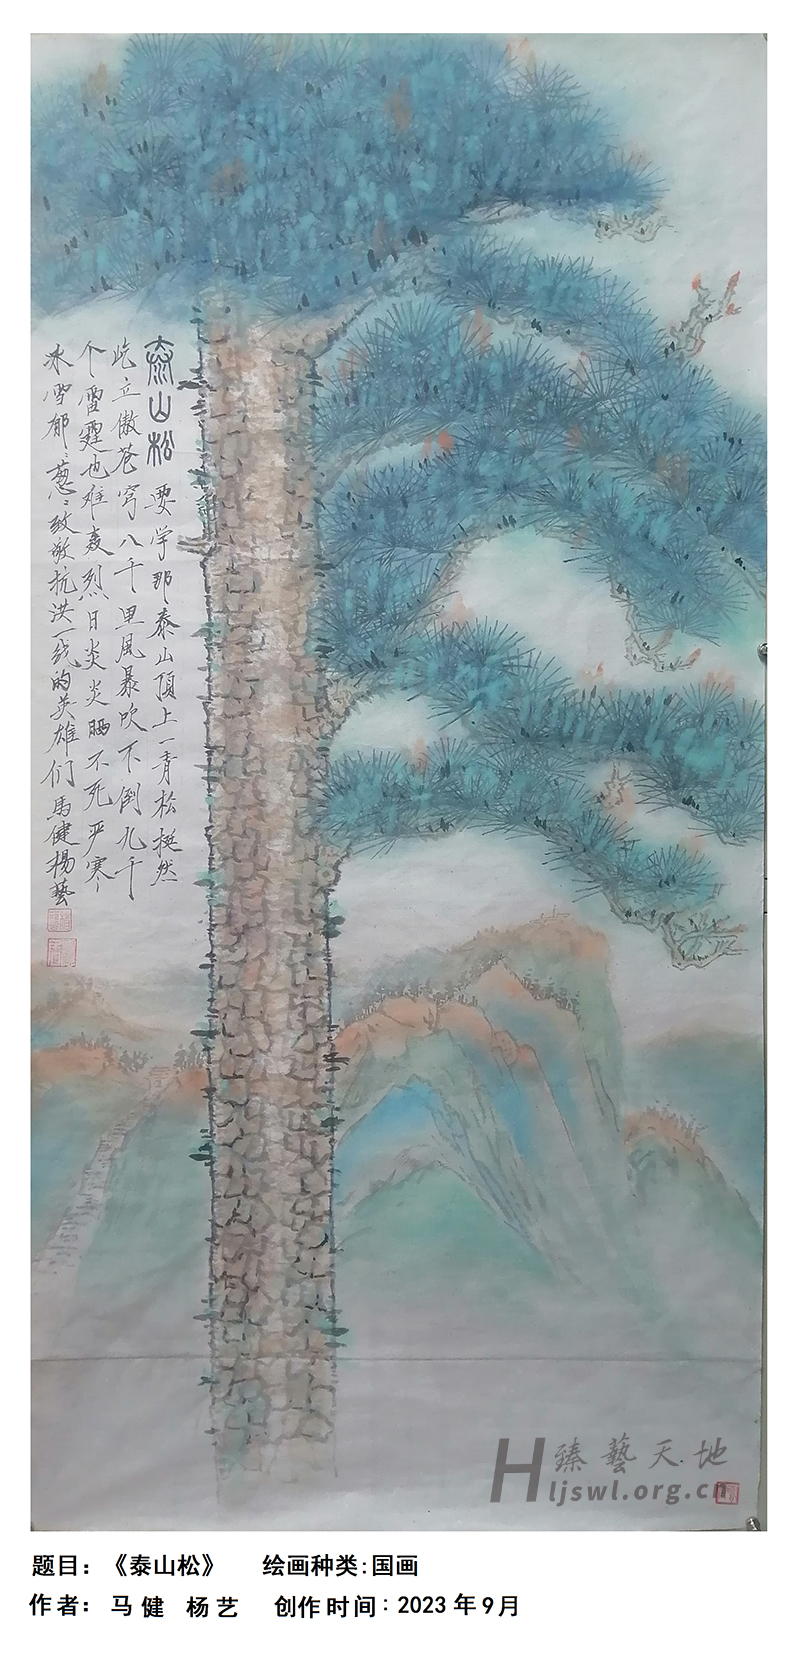 泰山松
要学那泰山顶上一青松挺然
屹立傲苍穹八千里風暴吹不倒九千
个雷霆也难轰烈日炎炎晒不死严寒
冰雪郁郁葱葱致敬抗洪一线的英雄们馬健楊藝
H臻藝天地
ljswl.org.cn
题目：《泰山松》 绘画种类:国画
作者： 马健 杨艺 创作时间：2023年9月